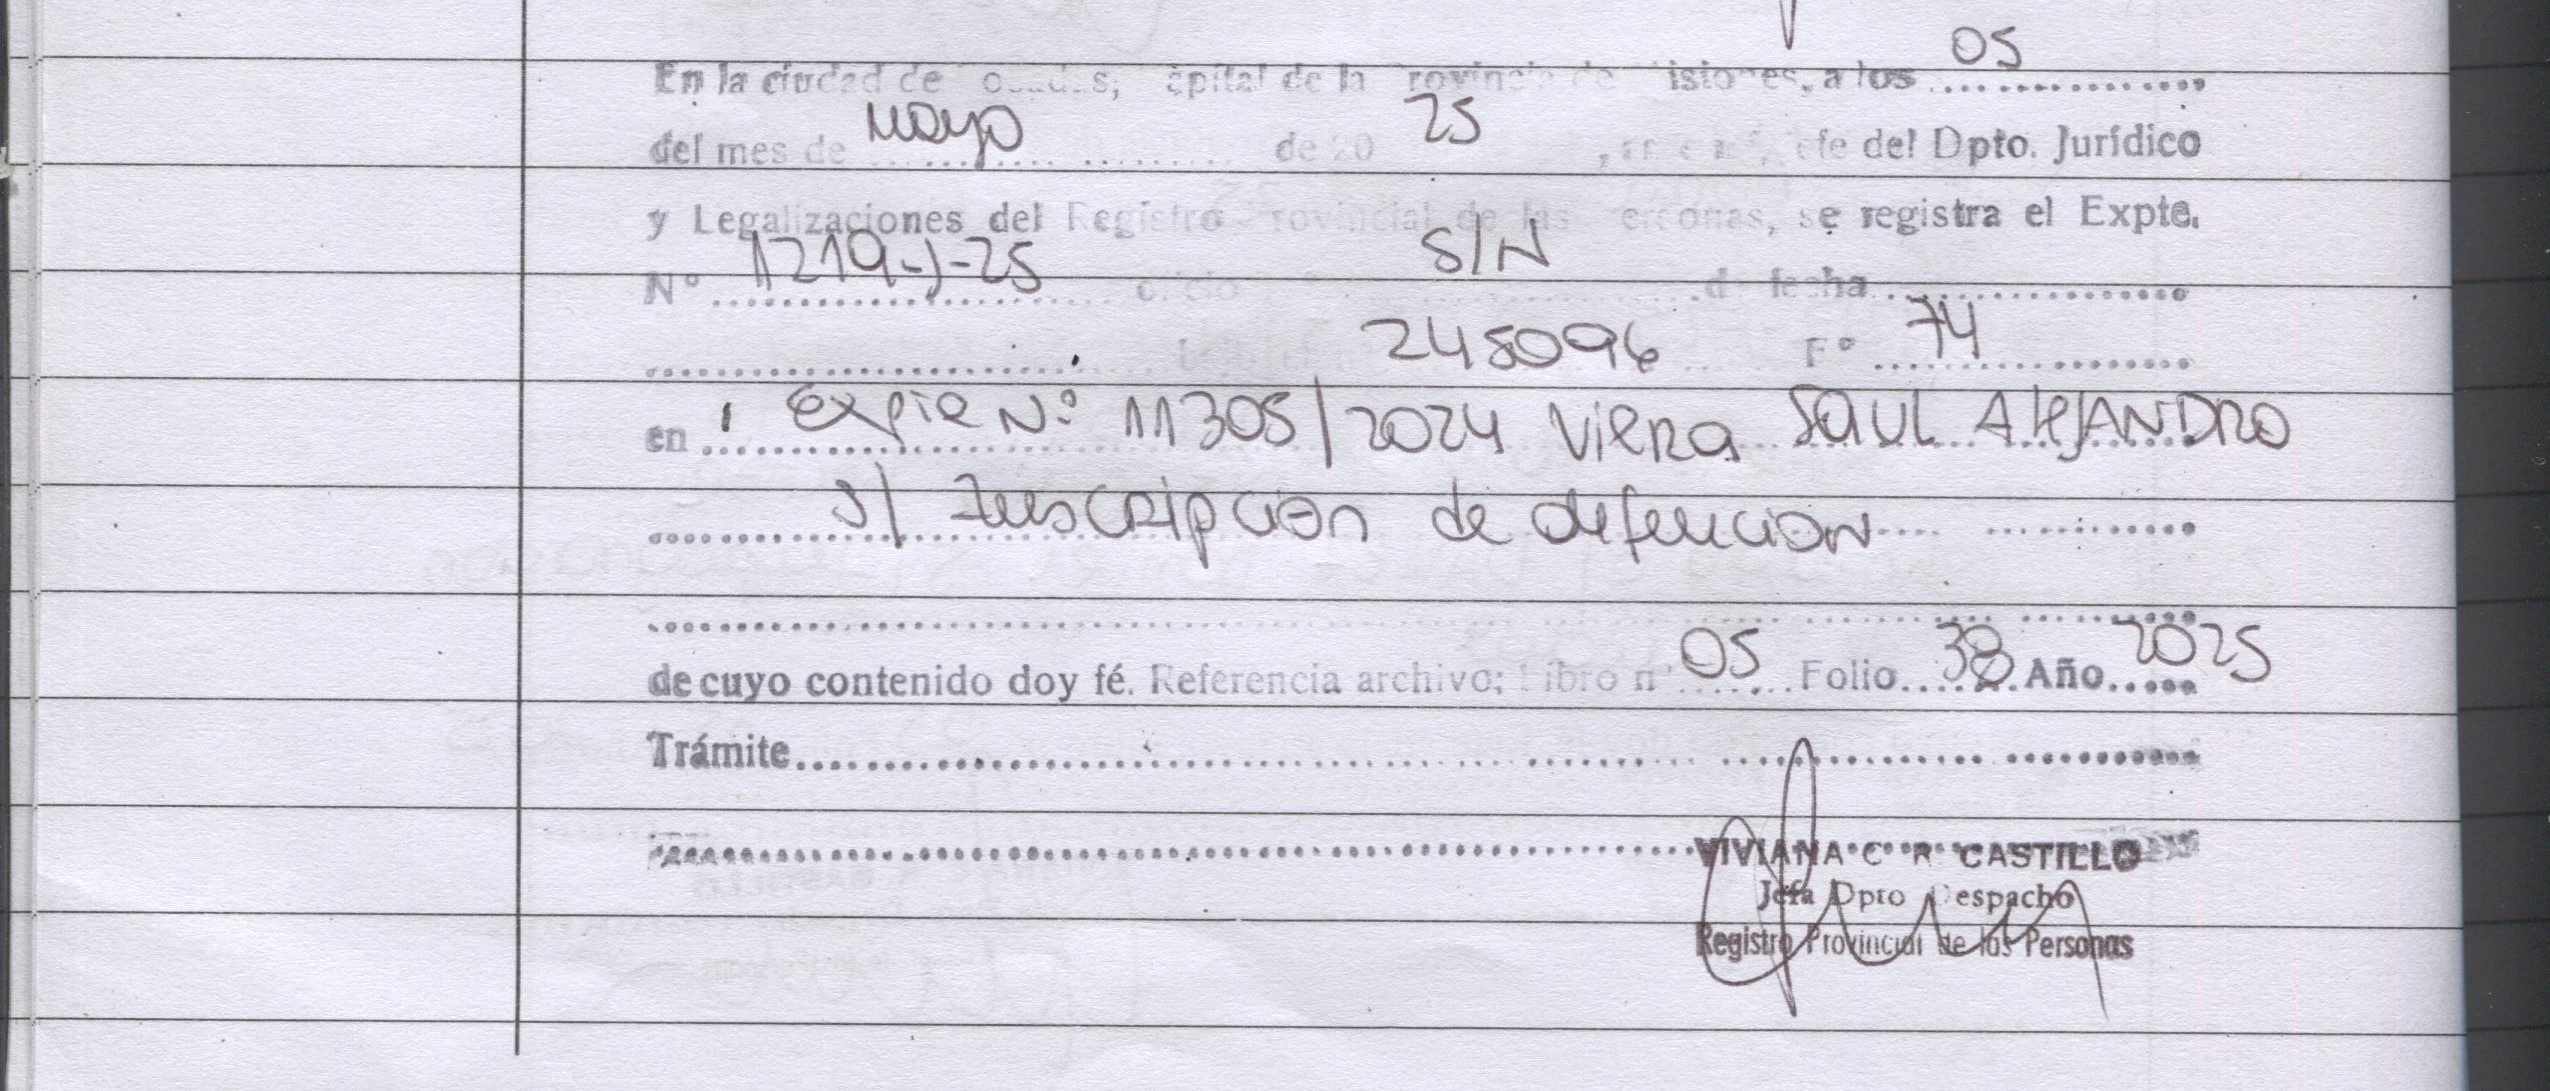 En la ciudad de Posadas, Capital de la Provincia de Misiones, a los 05
del mes de mayo de 20 25, ante mí, Jefe del Dpto. Jurídico
y Legalizaciones del Registro Provincial de las Personas, se registra el Expte.
N° 1219-J-25 oficio S/N de fecha
245096 F° 74
en Expte N° 11305/2024 Viera Saul Alejandro
S/ Inscripcion de defuncion
de cuyo contenido doy fé. Referencia archivo; Libro n° 05 Folio 38 Año 2025
Trámite
VIVIANA C R CASTILLO
Jefa Dpto Despacho
Registro Provincial de las Personas